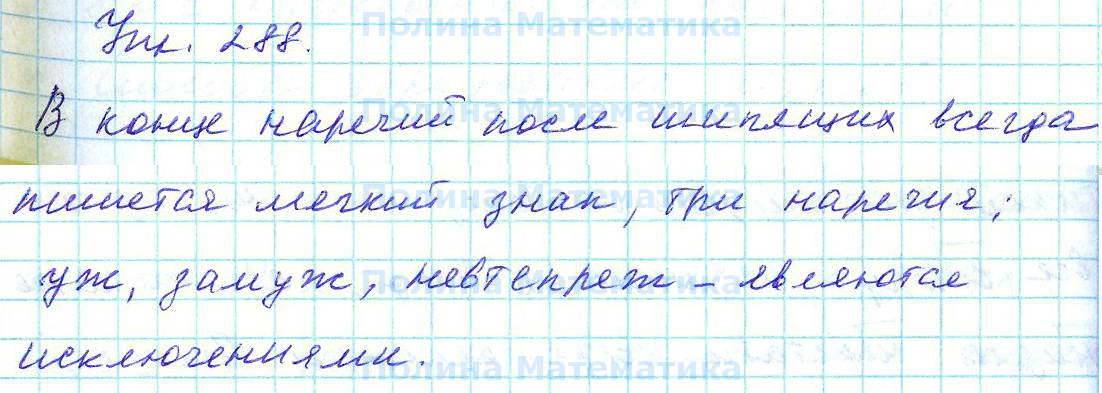 Полина Математика
Упр. 288.
Полина Математика
В конце наречий после шипящих всегда
Полина Математика
пишется мягкий знак, три наречия:
Полина Математика
уж, замуж, невтерпеж – являются
исключениями.
Полина Математика